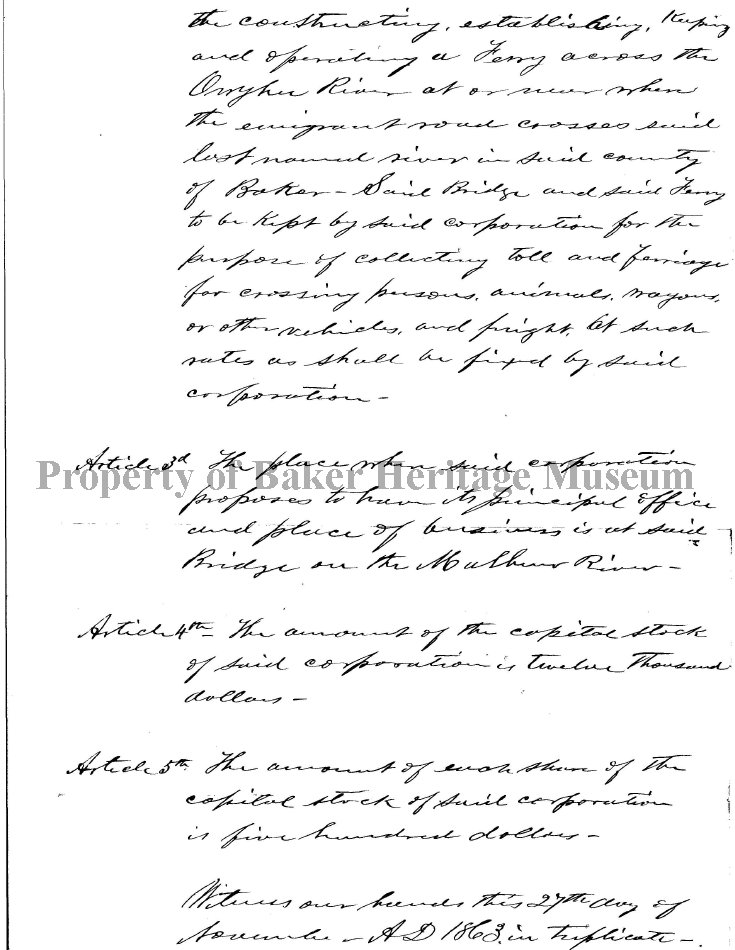 the constructing, establishing, Keeping
and operating a Ferry across the
Owyhee River at or near where
the emigrant road crosses said
last named river in said county
of Baker - Said Bridge and said Ferry
to be Kept by said corporation for the
purpose of collecting toll and ferriage
for crossing persons, animals, wagons,
or other vehicles, and freight, at such
rates as shall be fixed by said
corporation -
Article 3d The place where said corporation
Property of Baker Heritage Museum
proposes to have its principal office
and place of business is at said
Bridge on the Malheur River -
Article 4th - The amount of the capital stock
of said corporation is twelve Thousand
dollars -
Article 5th The amount of each share of the
capital stock of said corporation
is five hundred dollars -
Witness our hands this 27th day of
November - AD 1863. in triplicate -